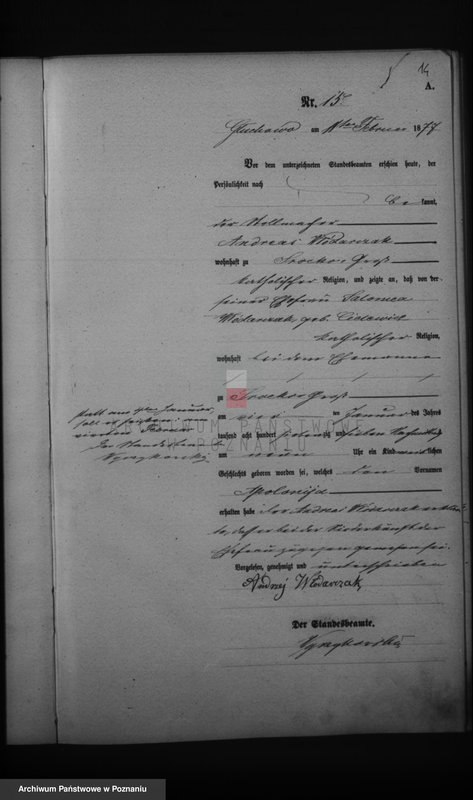 14
A.
Nr. 15
Gluchowo am ten Februar 1877
Vor dem unterzeichneten Standesbeamten erschien heute, der
Persönlichkeit nach
be kannt,
der Stellmacher
Andreas Wlodarczak
wohnhaft zu Srocko-Groß
katholischer Religion, und zeigte an, daß von der
seiner Ehefrau Salomea
Wlodarczak, geb.
katholischer Religion,
wohnhaft bei dem Ehemanne
zu Srocko-Groß
am ten Januar des Jahres
tausend acht hundert siebenzig sieben Nachmittags
um neun Uhr ein Kind weiblichen
Geschlechts geboren worden sei, welches den Vornamen
Apolonija
erhalten habe. der Andreas Wlodarczak erklär-
te, daß er bei der Niederkunft der
Ehefrau zugegen gewesen sei.
Vorgelesen, genehmigt und unterschrieben
Andrzej Włodarczak
Der Standesbeamte.
statt am Januar
soll es heißen: am
vierten Februar
Der Standesbeamte
ARCHIWUM PAŃSTWOWE
W POZNANIU
Archiwum Państwowe w Poznaniu